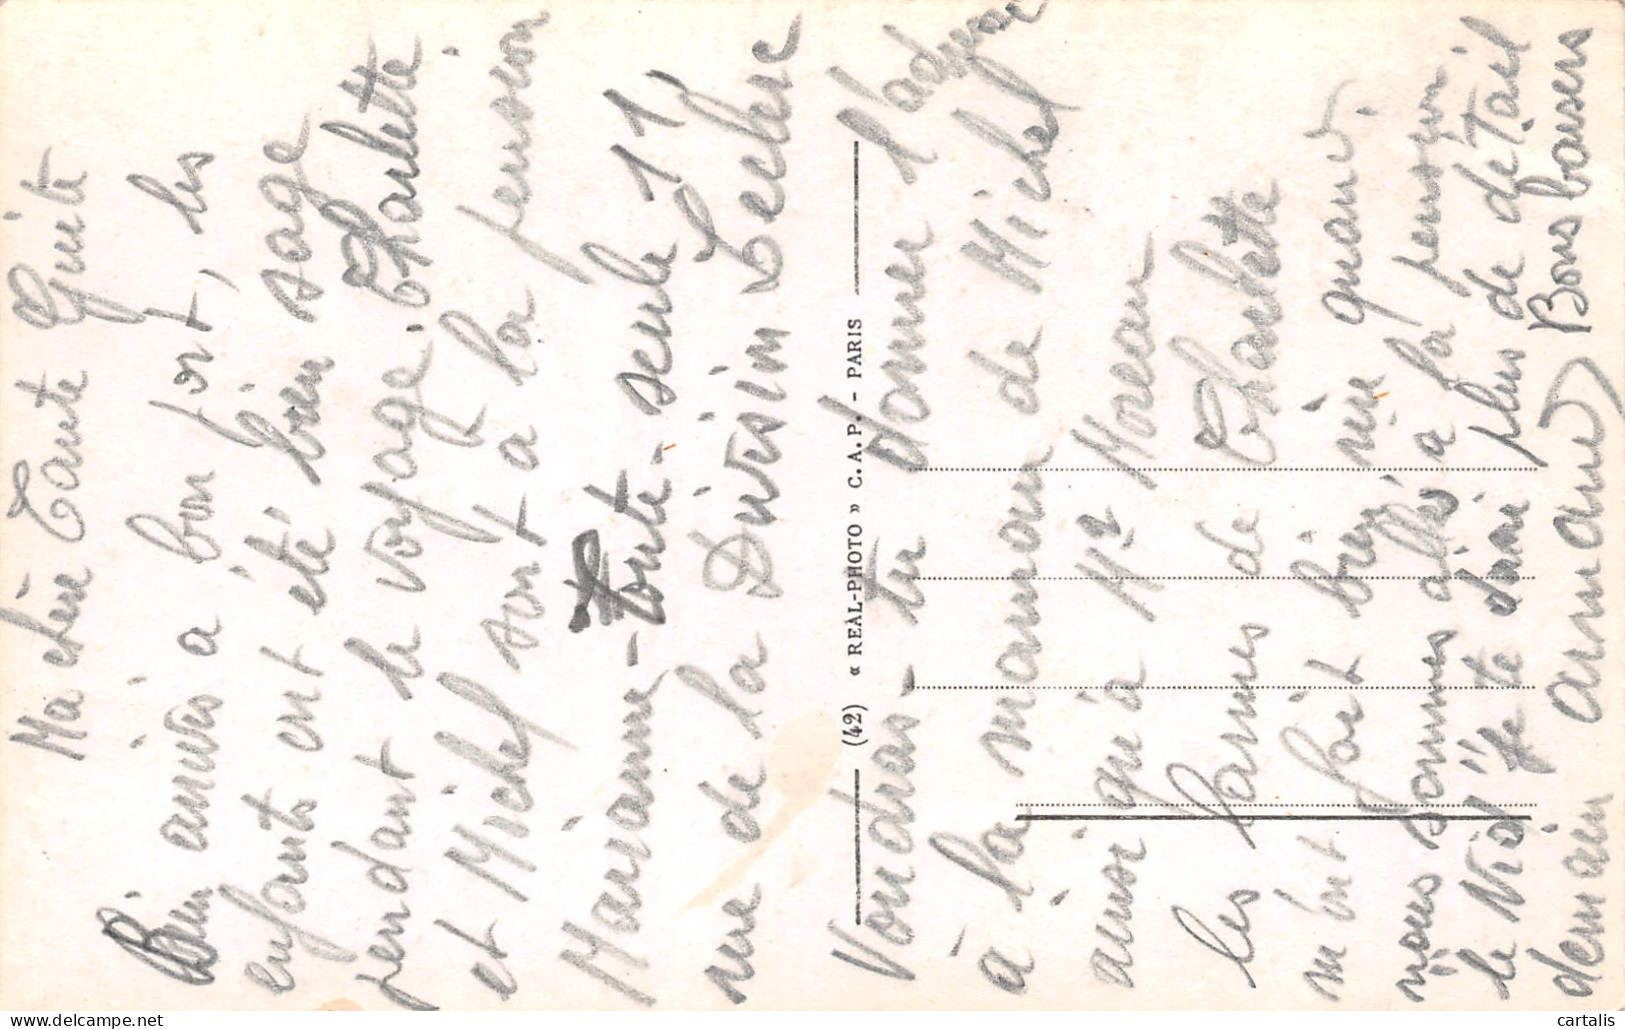 Ma chère Tante Guite
Bien arrivés à bon port, les
enfants ont été bien sage
pendant le voyage. Charlette
et Michel sont à la pension
Marianne - Toute seule 11
rue de la Division Leclerc
(42) « REAL-PHOTO » C. A. P. - PARIS
Voudras-tu donner l'adresse
à la maman de Michel
ainsi qu'à Mr Moreau
les larmes de Charlette
m'ont fait bien rire quand
nous sommes allés à la pension
le Nid" je te dirai plus de détail
demain armand Bons baisers
cartalis